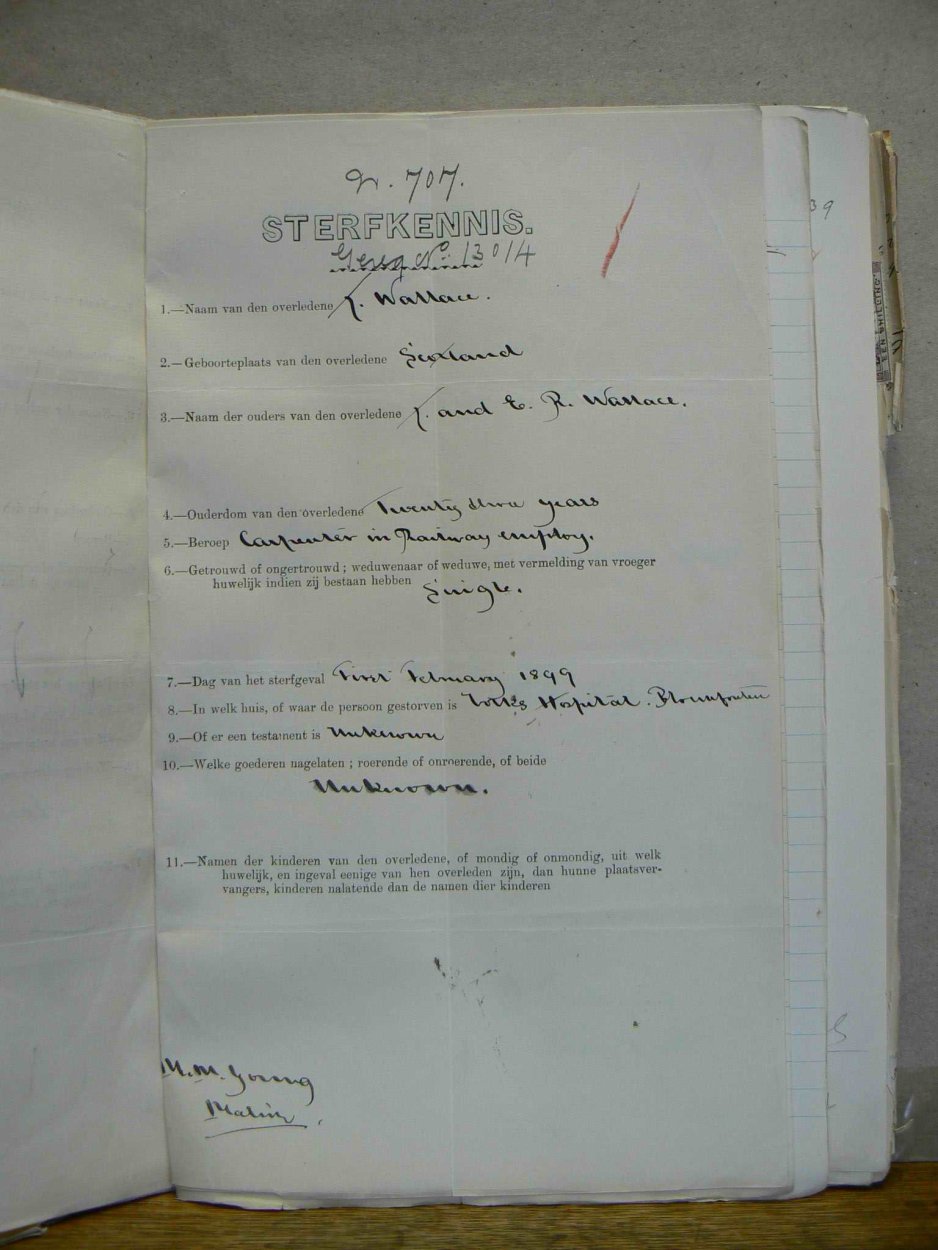 707.
STERFKENNIS.
Gereg No. 13014
1.—Naam van den overledene J. Wallace.
2.—Geboorteplaats van den overledene Scotland
3.—Naam der ouders van den overledene J. and E. R. Wallace.
4.—Ouderdom van den overledene Twenty three years
5.—Beroep Carpenter in Railway employ.
6.—Getrouwd of ongertrouwd; weduwenaar of weduwe, met vermelding van vroeger
huwelijk indien zij bestaan hebben Single.
7.—Dag van het sterfgeval First February 1899
8.—In welk huis, of waar de persoon gestorven is Volks Hospital. Bloemfontein
9.—Of er een testament is Unknown
10.—Welke goederen nagelaten; roerende of onroerende, of beide
Unknown.
11.—Namen der kinderen van den overledene, of mondig of onmondig, uit welk
huwelijk, en ingeval eenige van hen overleden zijn, dan hunne plaatsver-
vangers, kinderen nalatende dan de namen dier kinderen
M. M. Young
Matron
39
EEN SHILLING.